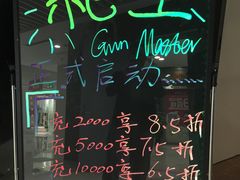 Gun Master
正式启动......
充2000享8.5折
充5000享7.5折
充10000享6.5折